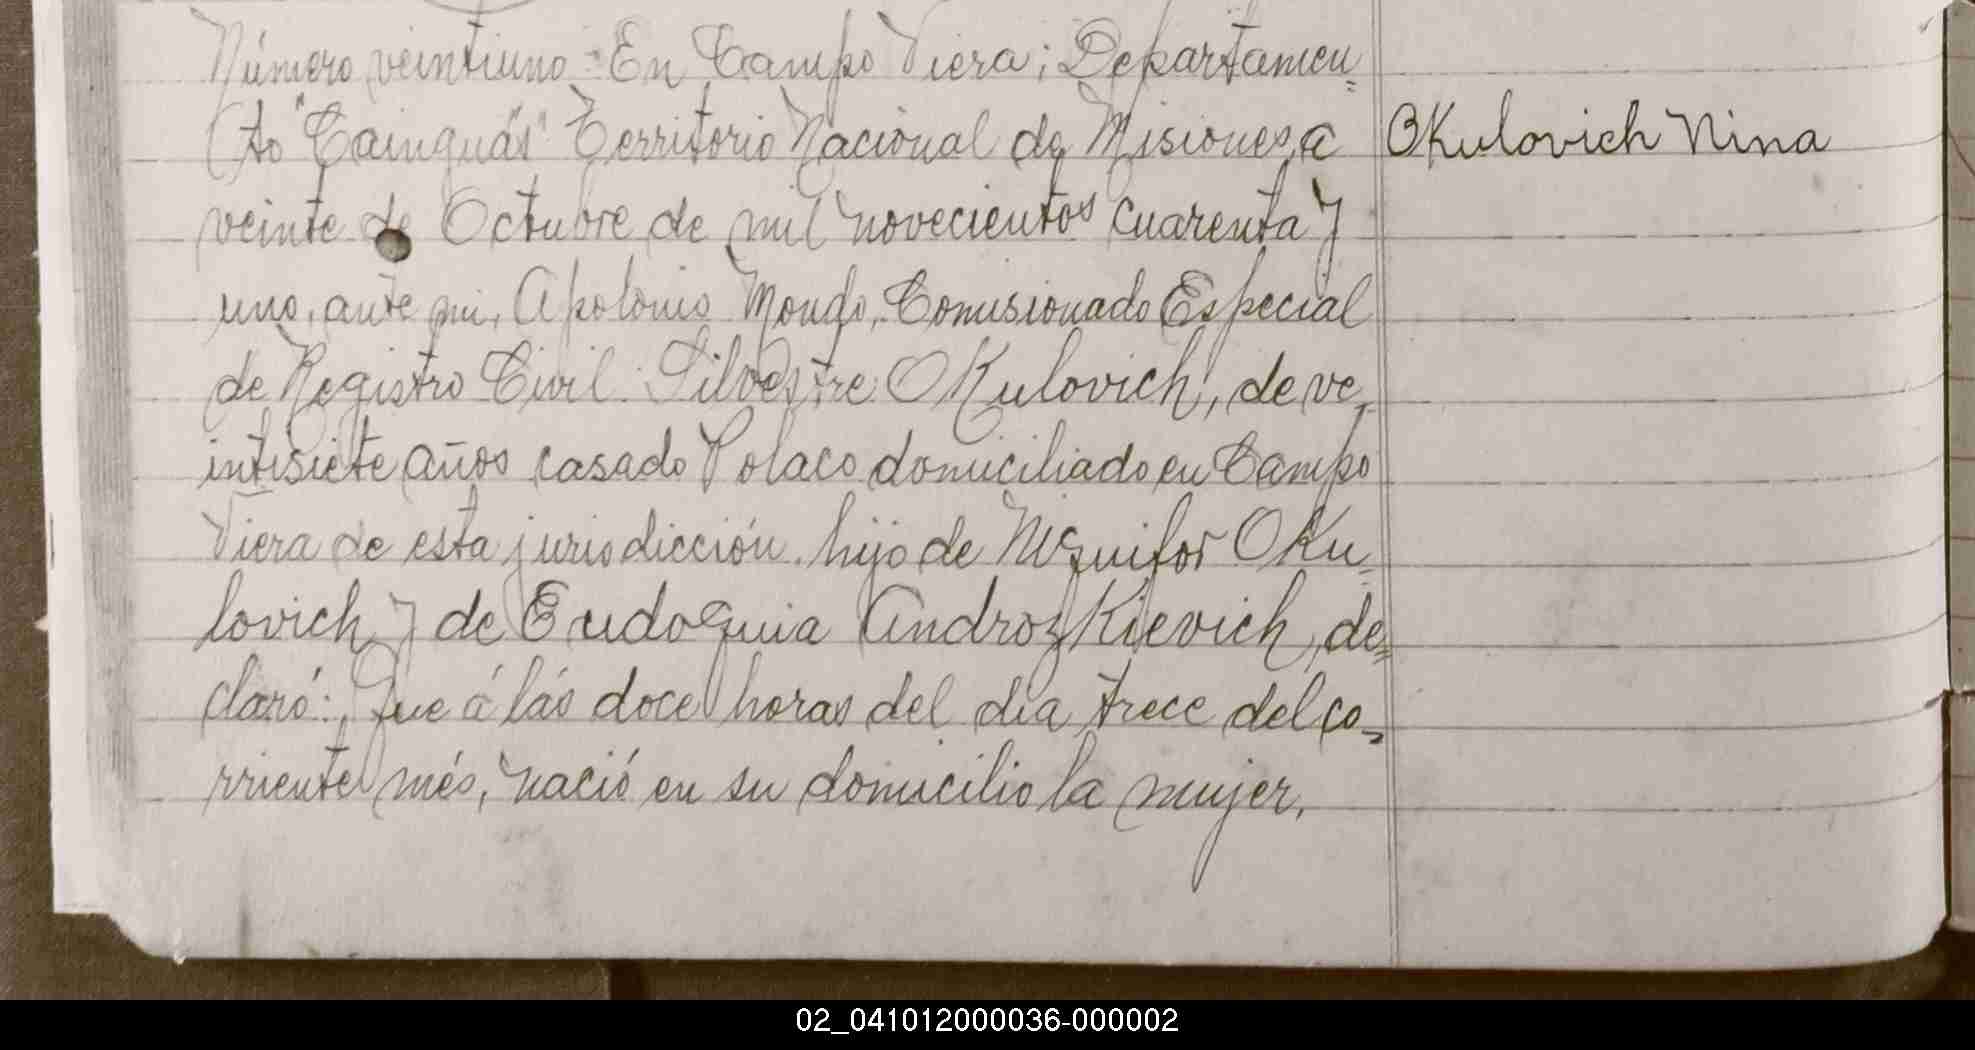 Número veintiuno = En Campo Viera; Departamen=
to "Cainguás" Territorio Nacional de Misiones, a
Okulovich Nina
veinte de Octubre de mil novecientos cuarenta y
uno, ante mi, Apolonio Mongo, Comisionado Especial
de Registro Civil: Silvestre Okulovich, de ve_
intisiete años casado Polaco domiciliado en Campo
Viera de esta jurisdicción. hijo de Oku=
lovich y de Eudoquia Androzkievich, de=
claró: Que á lás doce horas del dia trece del co=
rriente més, nació en su domicilio la mujer,
02_041012000036-000002